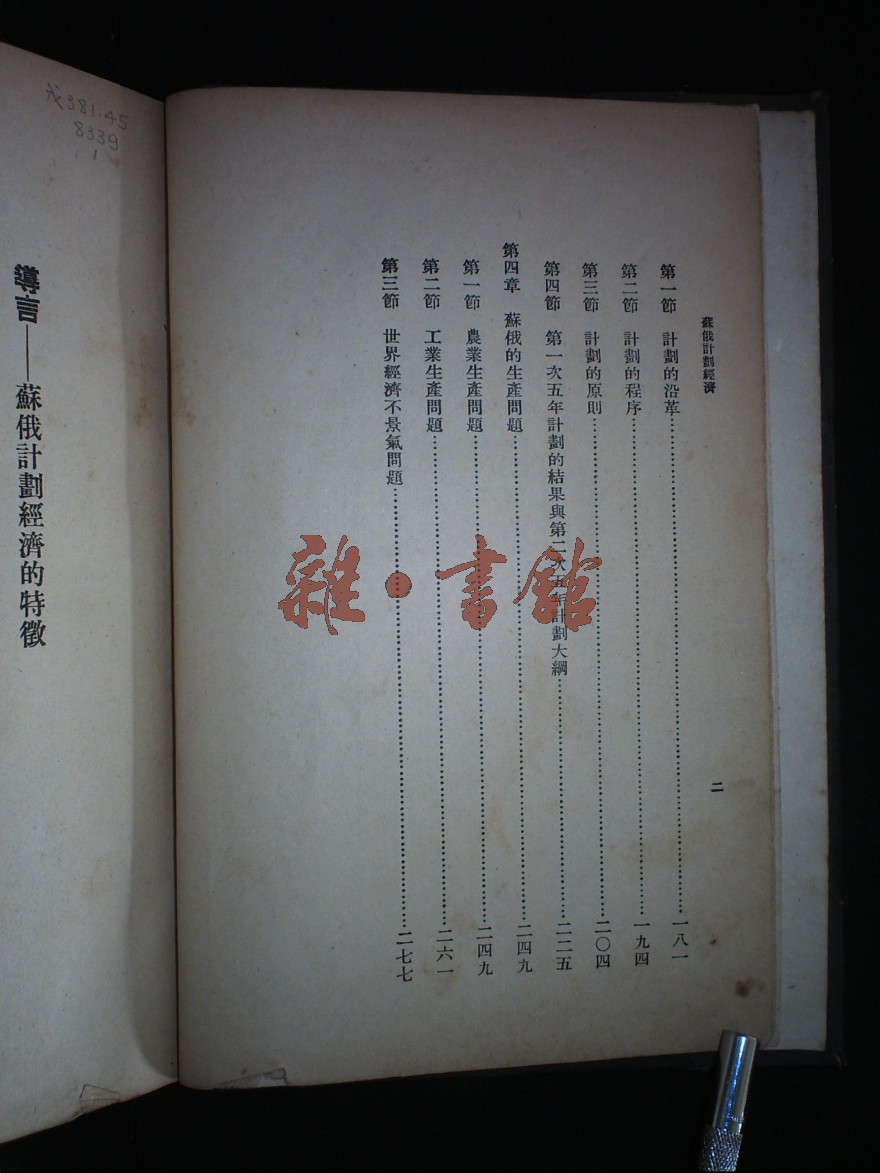 蘇俄計劃經濟
二
第一節 計劃的沿革……一八一
第二節 計劃的程序……一九四
第三節 計劃的原則……二〇四
第四節 第一次五年計劃的結果與第二次五年計劃大綱……二二五
第四章 蘇俄的生產問題……二四九
第一節 農業生產問題……二四九
第二節 工業生產問題……二六一
第三節 世界經濟不景氣問題……二七七
雜·書館
導言——蘇俄計劃經濟的特徵
381.45
8339
1